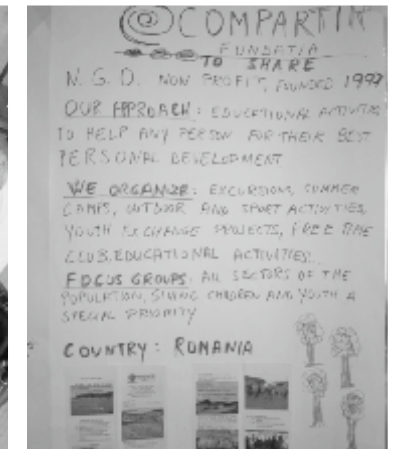 COMPARTIR
FUNDATIA
TO SHARE
N.G.O. NON PROFIT, FOUNDED 1999
OUR APPROACH: EDUCATIONAL ACTIVITIES
TO HELP ANY PERSON FOR THEIR BEST
PERSONAL DEVELOPMENT
WE ORGANIZE: EXCURSIONS, SUMMER
CAMPS, OUTDOOR AND SPORT ACTIVITIES,
YOUTH EXCHANGE PROJECTS, FREE TIME
CLUB, EDUCATIONAL ACTIVITIES...
FOCUS GROUPS: ALL SECTORS OF THE
POPULATION, GIVING CHILDREN AND YOUTH A
SPECIAL PRIORITY
COUNTRY: ROMANIA